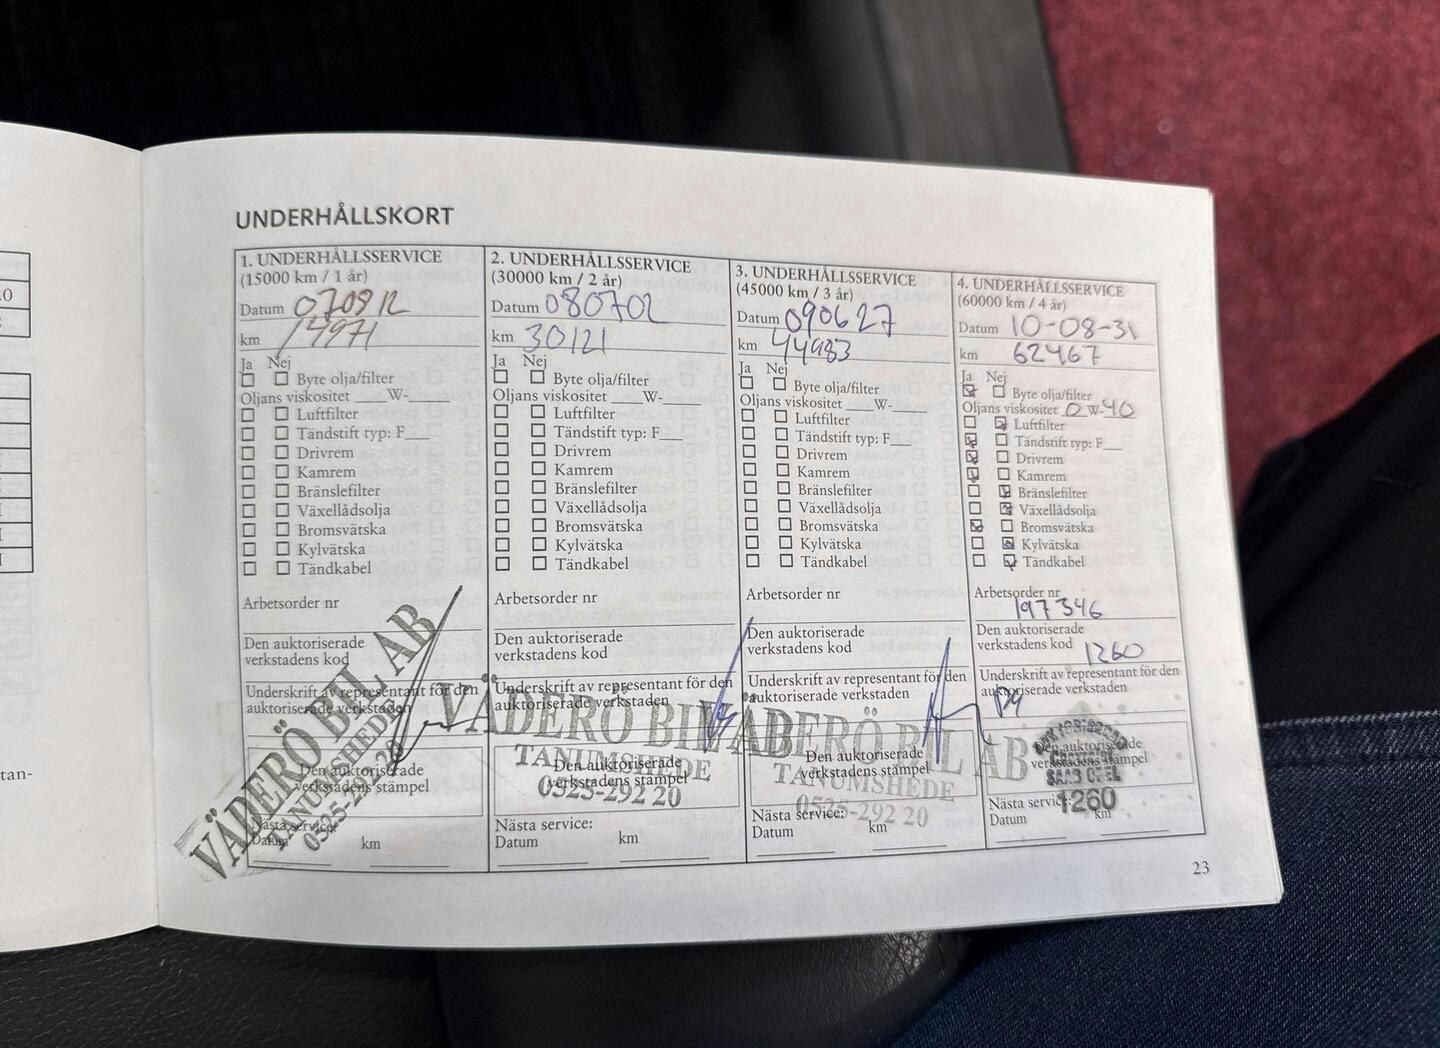 .0
tan-
UNDERHÅLLSKORT
1. UNDERHÅLLSSERVICE
(15000 km / 1 år)
Datum 070912
km 14971
Ja Nej
Byte olja/filter
Oljans viskositet ____W-____
Luftfilter
Tändstift typ: F___
Drivrem
Kamrem
Bränslefilter
Växellådsolja
Bromsvätska
Kylvätska
Tändkabel
Arbetsorder nr
Den auktoriserade
verkstadens kod
Underskrift av representant för den
auktoriserade verkstaden
Den auktoriserade
verkstadens stämpel
VÄDERÖ BIL AB
TANUMSHEDE
0525-292 20
Nästa service:
Datum km
2. UNDERHÅLLSSERVICE
(30000 km / 2 år)
Datum 080702
km 30121
Ja Nej
Byte olja/filter
Oljans viskositet ____W-____
Luftfilter
Tändstift typ: F___
Drivrem
Kamrem
Bränslefilter
Växellådsolja
Bromsvätska
Kylvätska
Tändkabel
Arbetsorder nr
Den auktoriserade
verkstadens kod
Underskrift av representant för den
auktoriserade verkstaden
VÄDERÖ BIL AB
TANUMSHEDE
Den auktoriserade
verkstadens stämpel
0525-292 20
Nästa service:
Datum km
3. UNDERHÅLLSSERVICE
(45000 km / 3 år)
Datum 090627
km 44983
Ja Nej
Byte olja/filter
Oljans viskositet ____W-____
Luftfilter
Tändstift typ: F___
Drivrem
Kamrem
Bränslefilter
Växellådsolja
Bromsvätska
Kylvätska
Tändkabel
Arbetsorder nr
Den auktoriserade
verkstadens kod
Underskrift av representant för den
auktoriserade verkstaden
VÄDERÖ BIL AB
Den auktoriserade
verkstadens stämpel
TANUMSHEDE
0525-292 20
Nästa service:
Datum km
4. UNDERHÅLLSSERVICE
(60000 km / 4 år)
Datum 10-08-31
km 62467
Ja Nej
Byte olja/filter
Oljans viskositet 0 W-40
Luftfilter
Tändstift typ: F___
Drivrem
Kamrem
Bränslefilter
Växellådsolja
Bromsvätska
Kylvätska
Tändkabel
Arbetsorder nr
197346
Den auktoriserade
verkstadens kod 1260
Underskrift av representant för den
auktoriserade verkstaden
Den auktoriserade
verkstadens stämpel
SAAB OPEL
1260
Nästa service:
Datum km
23